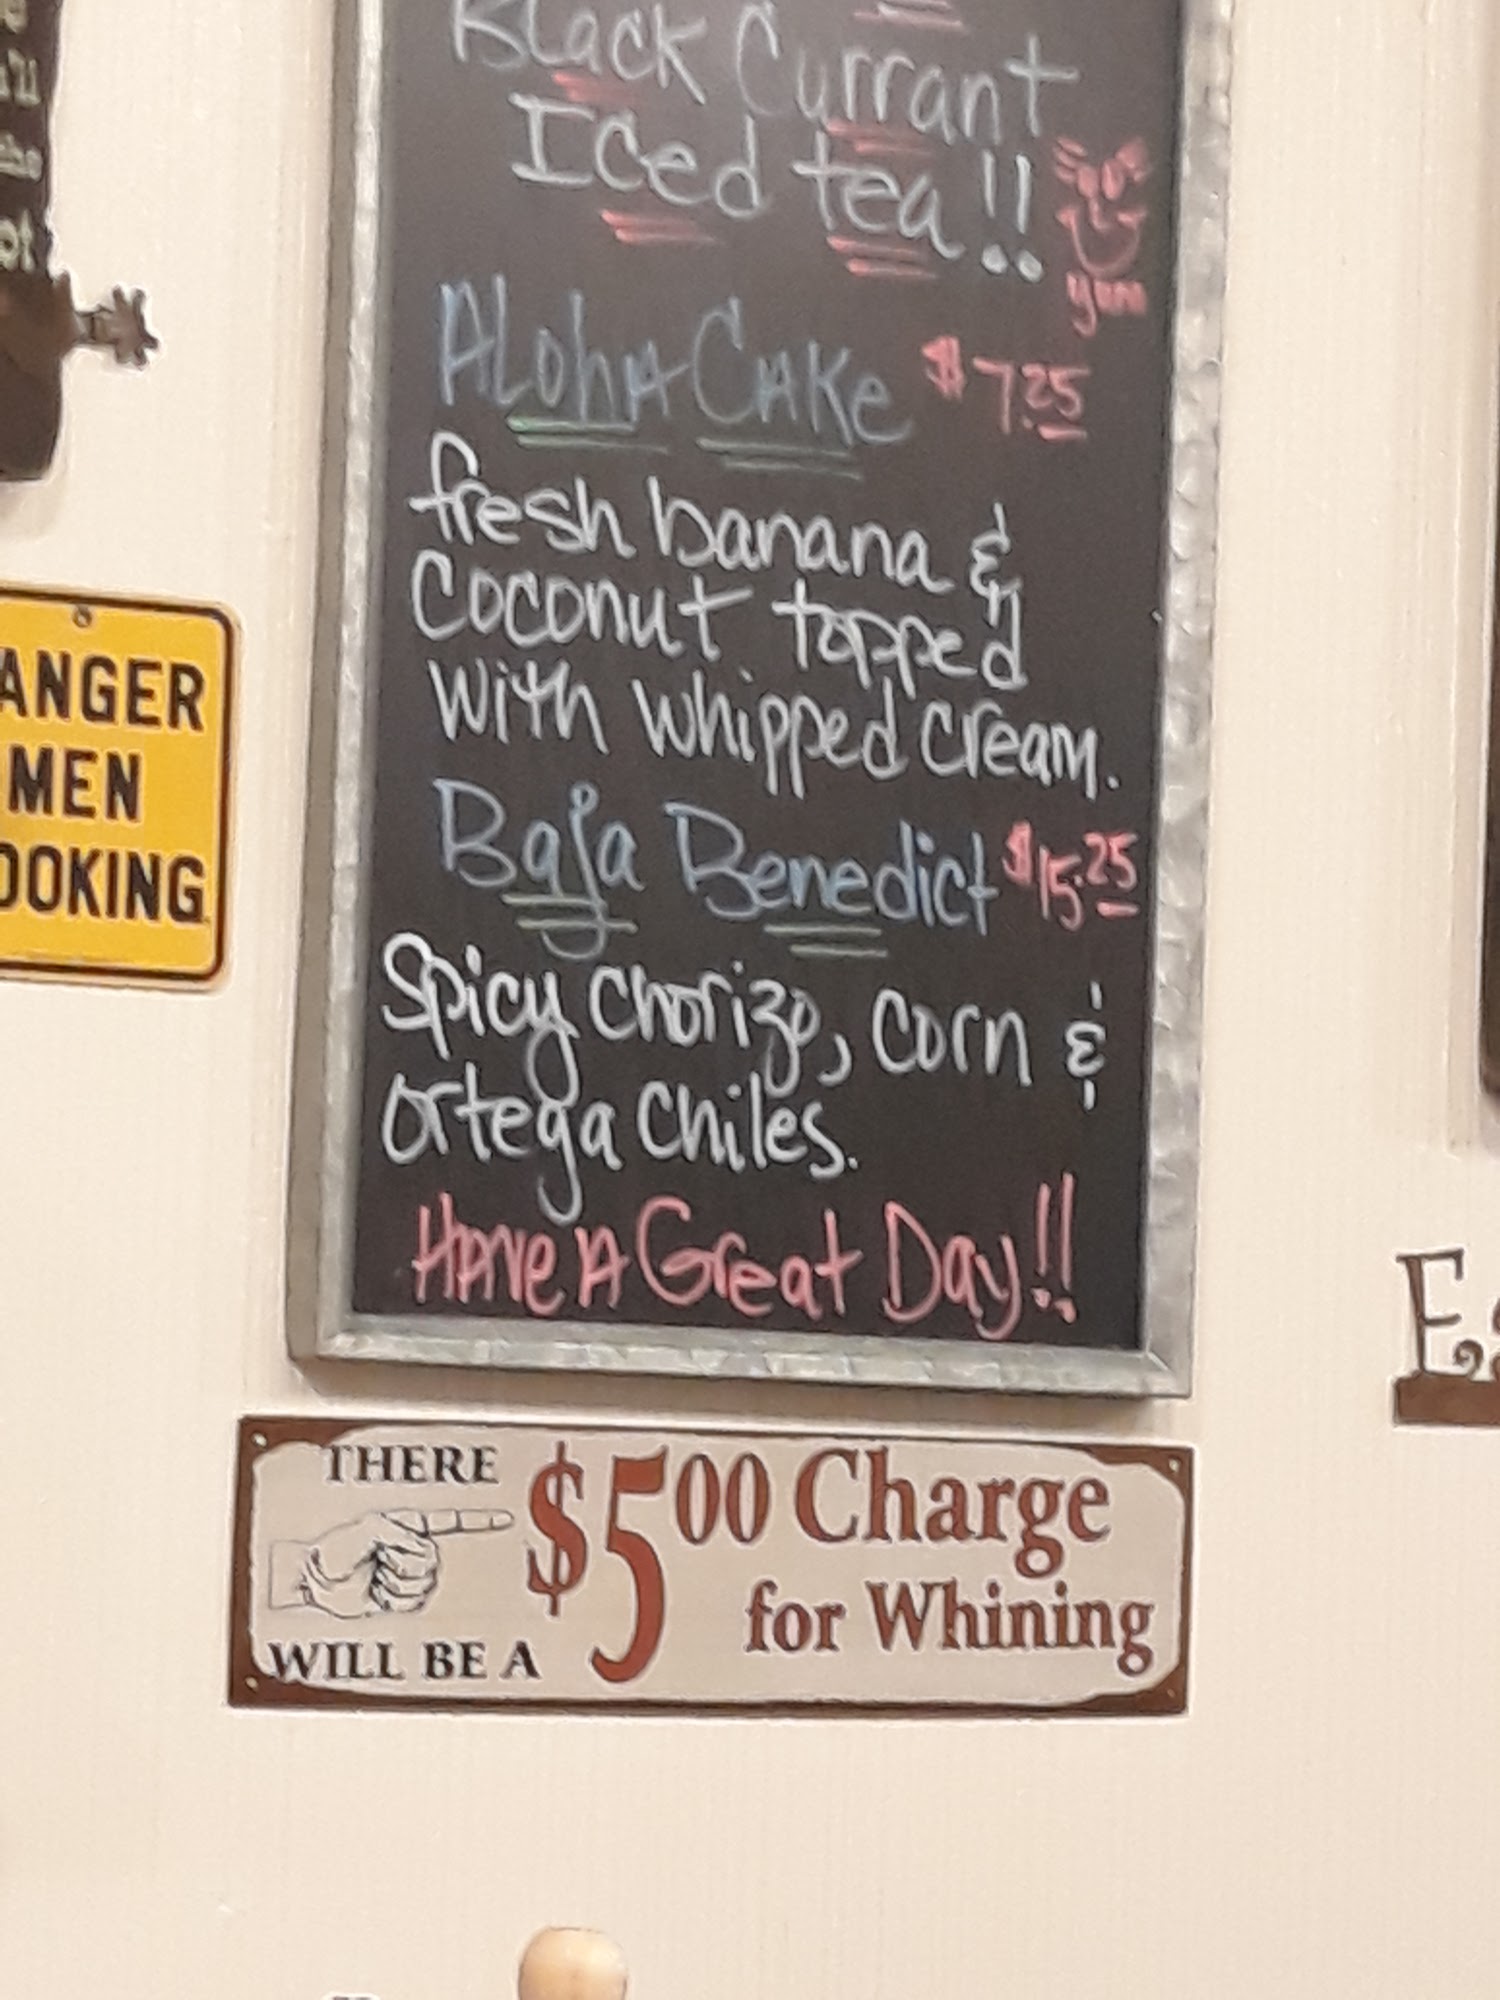 Black Currant
Iced tea!!
yum
Aloha Cake $7.25
fresh banana &
Coconut topped
with whipped cream.
Baja Benedict $15.25
Spicy Chorizo, corn &
ortega chiles.
Have A Great Day!!
ANGER
MEN
OOKING
THERE
WILL BE A
$5.00 Charge
for Whining